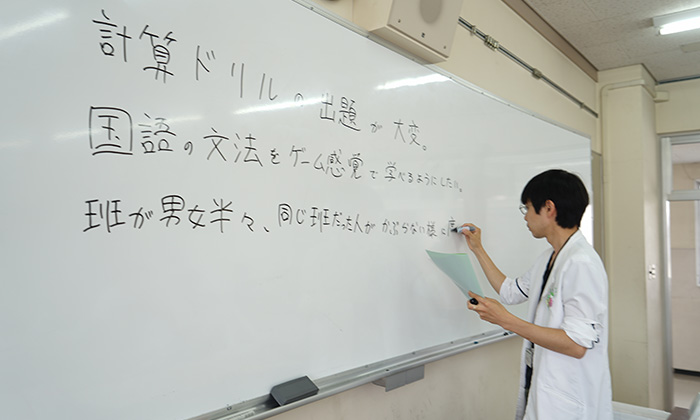 計算ドリルの出題が大変。
国語の文法をゲーム感覚で学べるようにしたい。
班が男女半々、同じ班だった人がかぶらない様に席